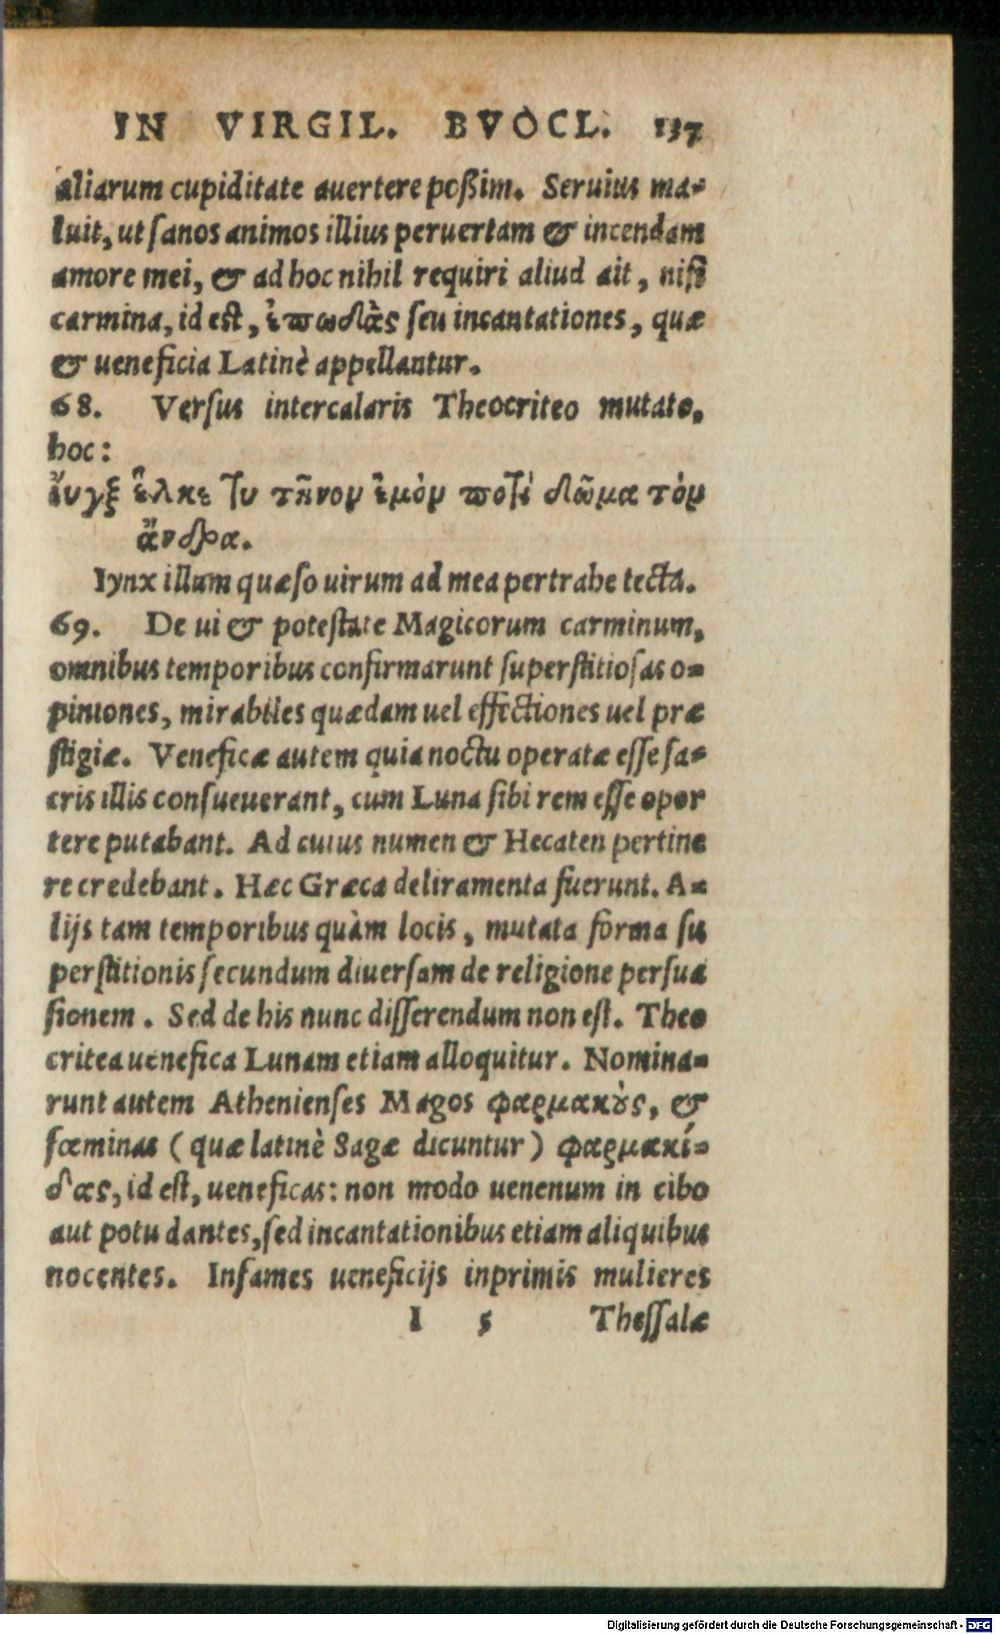 IN VIRGIL. BVOCL. 137
aliarum cupiditate auertere poßim. Seruius ma-
luit, ut sanos animos illius peruertam & incendam
amore mei, & ad hoc nihil requiri aliud ait, nisi
carmina, id est, ἐπωδὰς seu incantationes, quæ
& ueneficia Latinè appellantur.
68. Versus intercalaris Theocriteo mutato,
hoc:
ἴυγξ ἕλκε τυ τῆνον ἐμὸν ποτὶ δῶμα τὸν
ἄνδρα.
Iynx illum quæso uirum ad mea pertrahe tecta.
69. De ui & potestate Magicorum carminum,
omnibus temporibus confirmarunt superstitiosas o-
piniones, mirabiles quædam uel effectiones uel præ
stigiæ. Veneficæ autem quia noctu operatæ esse sa-
cris illis consueuerant, cum Luna sibi rem esse opor
tere putabant. Ad cuius numen & Hecaten pertine
re credebant. Hæc Græca deliramenta fuerunt. A-
lijs tam temporibus quàm locis, mutata forma su
perstitionis secundum diuersam de religione persua
sionem. Sed de his nunc disserendum non est. Theo
critea uenefica Lunam etiam alloquitur. Nomina-
runt autem Athenienses Magos φαρμακοὺς, &
fœminas (quæ latinè Sagæ dicuntur) φαρμακί-
δας, id est, ueneficas: non modo uenenum in cibo
aut potu dantes, sed incantationibus etiam aliquibus
nocentes. Infames ueneficijs inprimis mulieres
I 5 Thessalæ
Digitalisierung gefördert durch die Deutsche Forschungsgemeinschaft - DFG